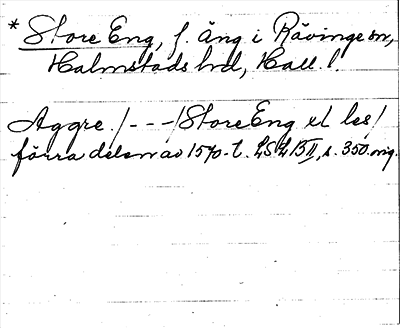 * Store Eng, f. äng i Rävinge sn,
Halmstads hd, Hall. l.
Aggre /- - -/ Store Eng et les /
förra delen av 1570-t. LSL B II, s. 350. orig.